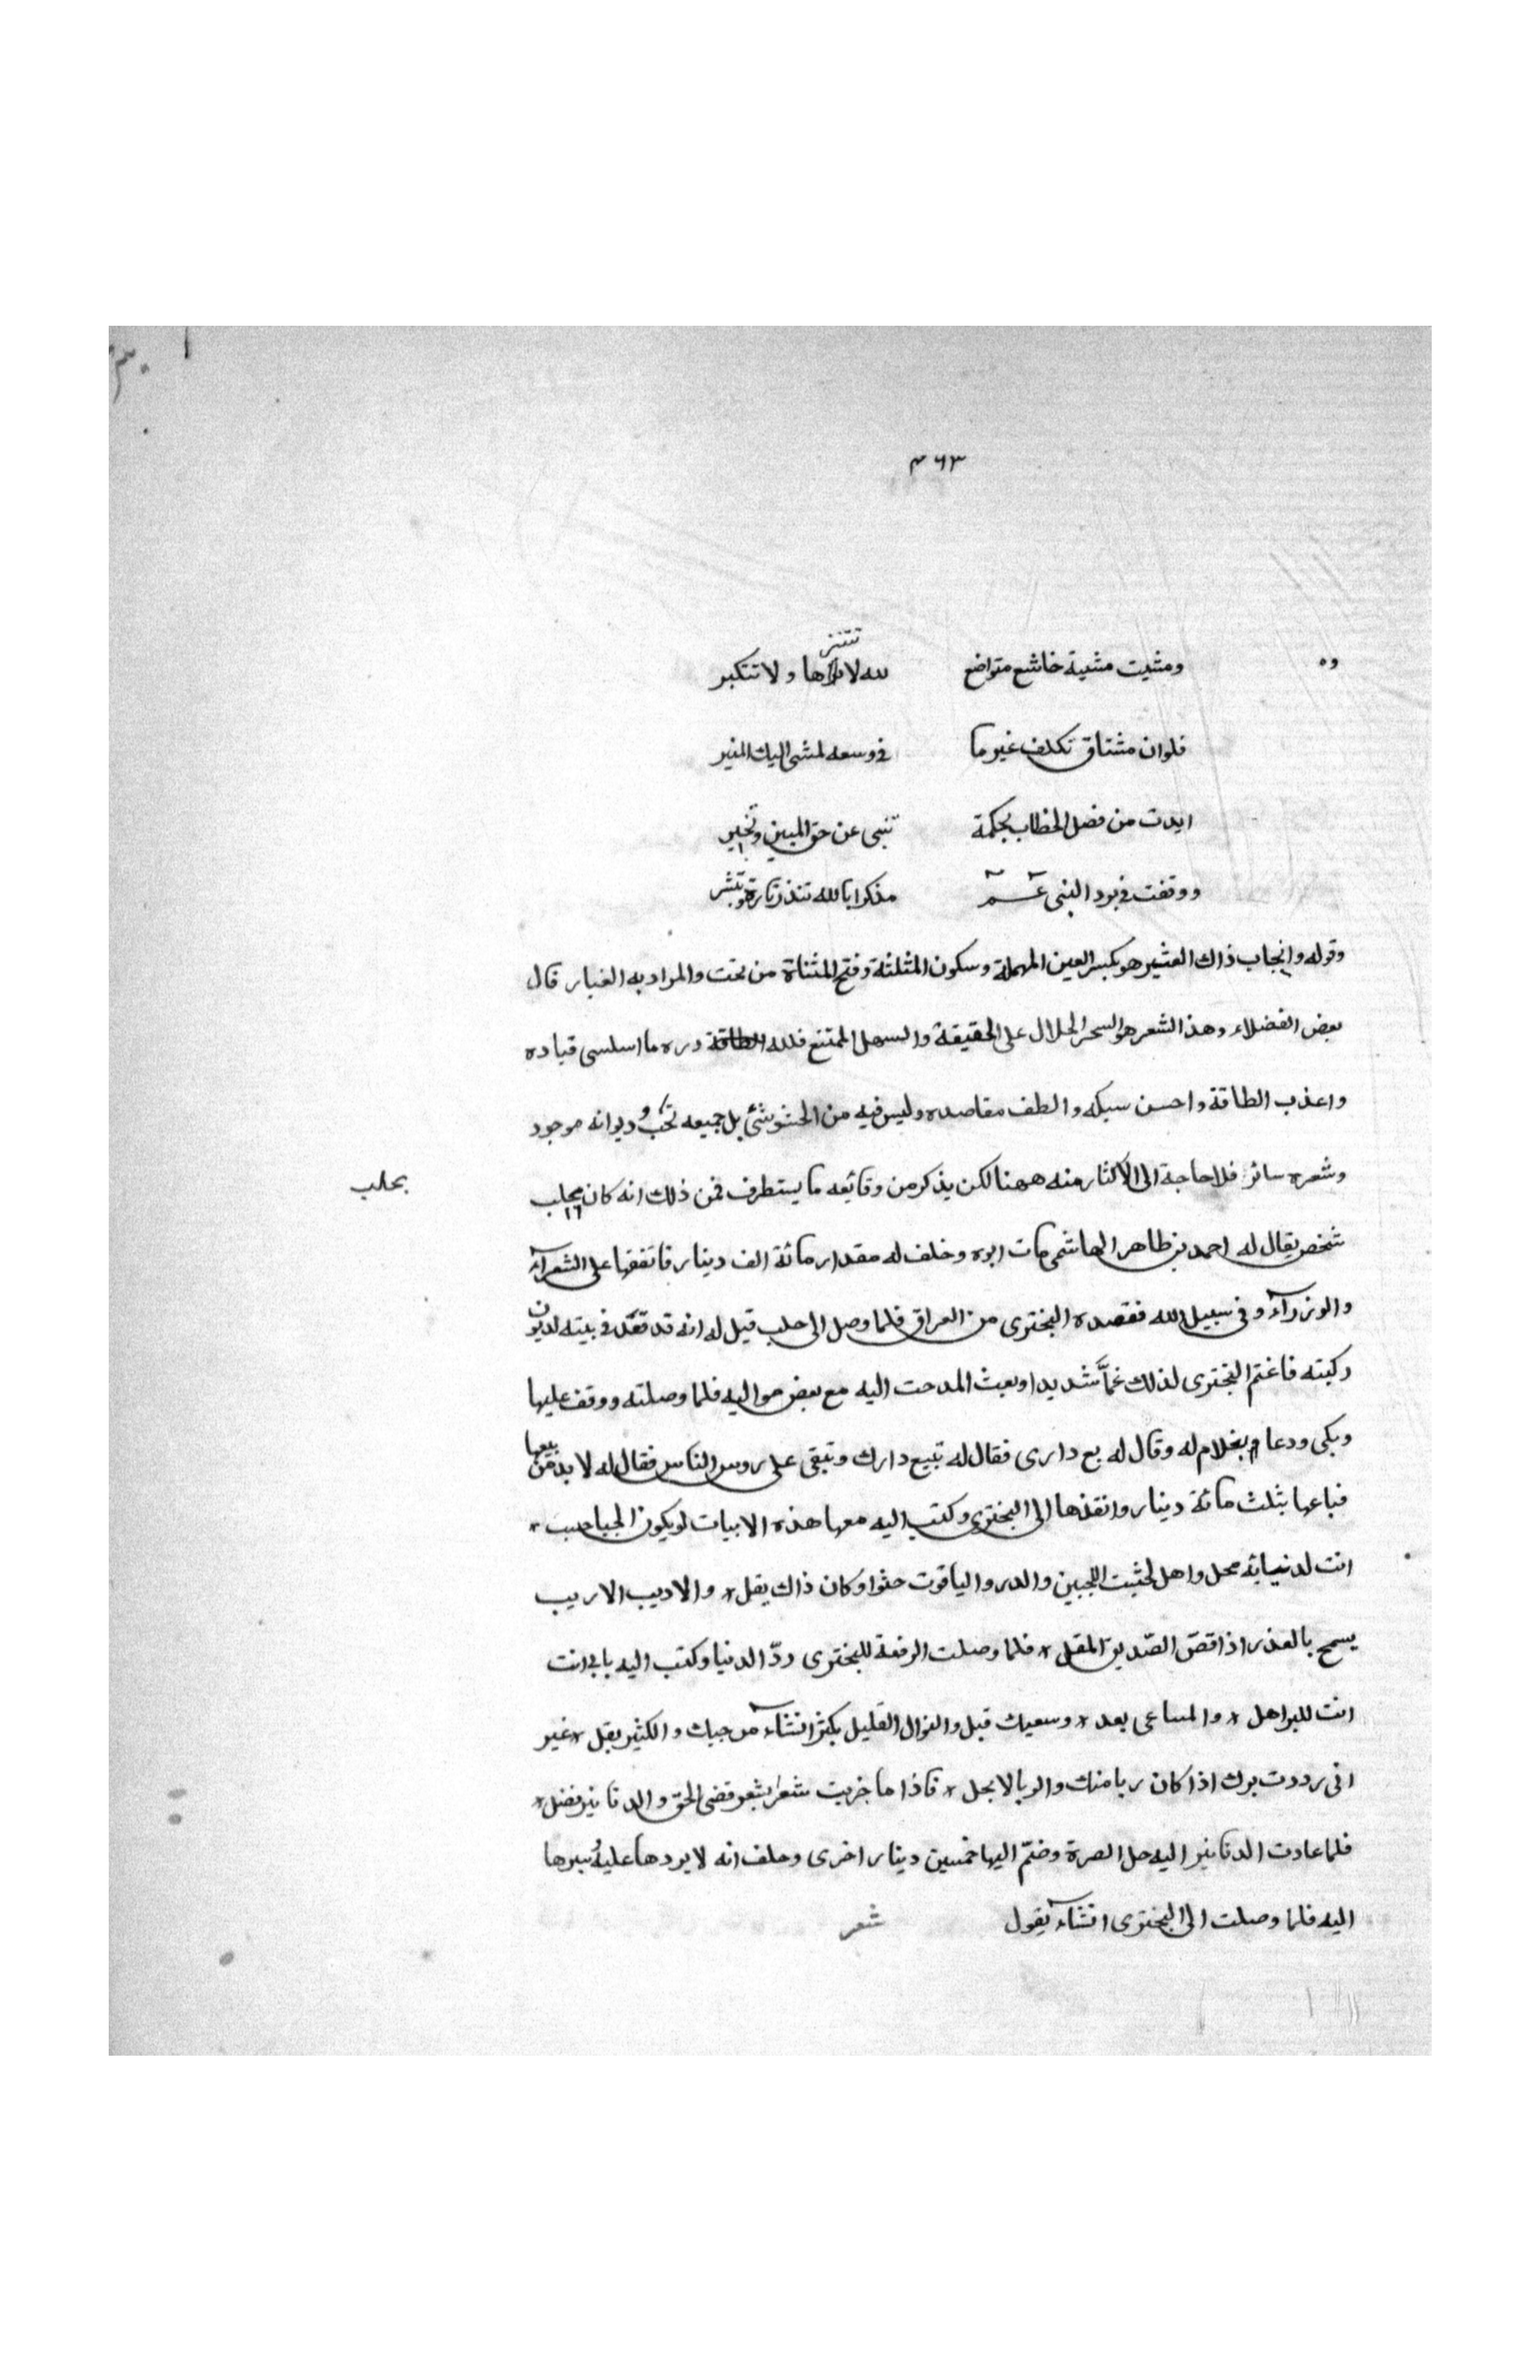 ٤٦٣
وه ومشيت مشية خاشع متواضع لله لا تتنزها ولا تتكبر
فلوان مشتاق تكلف غير ما في وسعه لمشى اليك المنبر
ايدت من فضل الخطاب بحكمة تنبى عن حق المبين وتخبر
ووقفت في برد النبى مذكرا بالله تنذر تارة وتبشر
وقوله وانجاب ذاك العثير هو بكسر العين المهملة وسكون المثلثة وفتح المثناة من تحت والمراد به الغبار قال
بعض الفضلاء وهذا الشعر هو السحر الحلال على الحقيقة والسهل الممتنع فلله دره ما اسلس قياده
واعذب الطاقة واحسن سبكه والطف مقاصده وليس فيه من الحشو شئ بل جميعه نخب وديوانه موجود
وشعره سائر فلا حاجة الى الاكثار منه ههنا لكن يذكر من وقائعه ما يستطرف فمن ذلك انه كان بحلب
بحلب
شخص يقال له احمد بن طاهر الهاشمى مات ابوه وخلف له مقدار مائة الف دينار فانفقها على الشعرآء
والوزرآء وفى سبيل الله فقصده البخترى من العراق فلما وصل الى حلب قيل له انه قد قعد في بيته لديون
ركبته فاغتم البخترى لذلك غمّا شديدا وبعث المدحت اليه مع بعض مواليه فلما وصلته ووقف عليها
وبكى ودعا بغلام له وقال له بع دارى فقال له تبيع دارك وتبقى على روس الناس فقال له لا بد من بيعها
فباعها بثلث مائة دينار وانفذها الى البخترى وكتب اليه معها هذه الابيات لو يكون الحبا حسب *
انت لدنيا به محل واهل لحثيت اللجين والدر والياقوت حثوا وكان ذاك يقل * والاديب الاريب
يسمح بالعذر اذا قصّ الصّديق المقل * فلما وصلت الرقعة للبخترى ردّ الدنيا وكتب اليه بابى انت
انت للبر اهل * والمساعى بعد * وسعيك قبل والنوال القليل يكثر انشآء من حبك والكثير يقل * غير
انى رددت برك اذا كان ربا منك والربا لا يحل * فاذا ما جزيت شعرا بشعر قضى الحق والدنانير فضل *
فلما عادت الدنانير اليه حل الصرة وضمّ اليها خمسين دينار اخرى وحلف انه لا يردها عليه وسيرها
اليه فلما وصلت الى البخترى انشآء يقول شعر